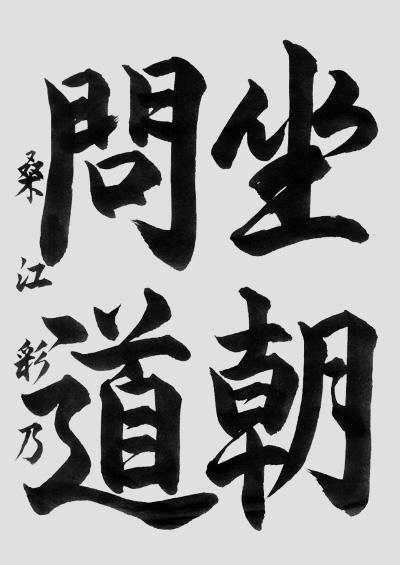 坐朝
問道
桑江彩乃